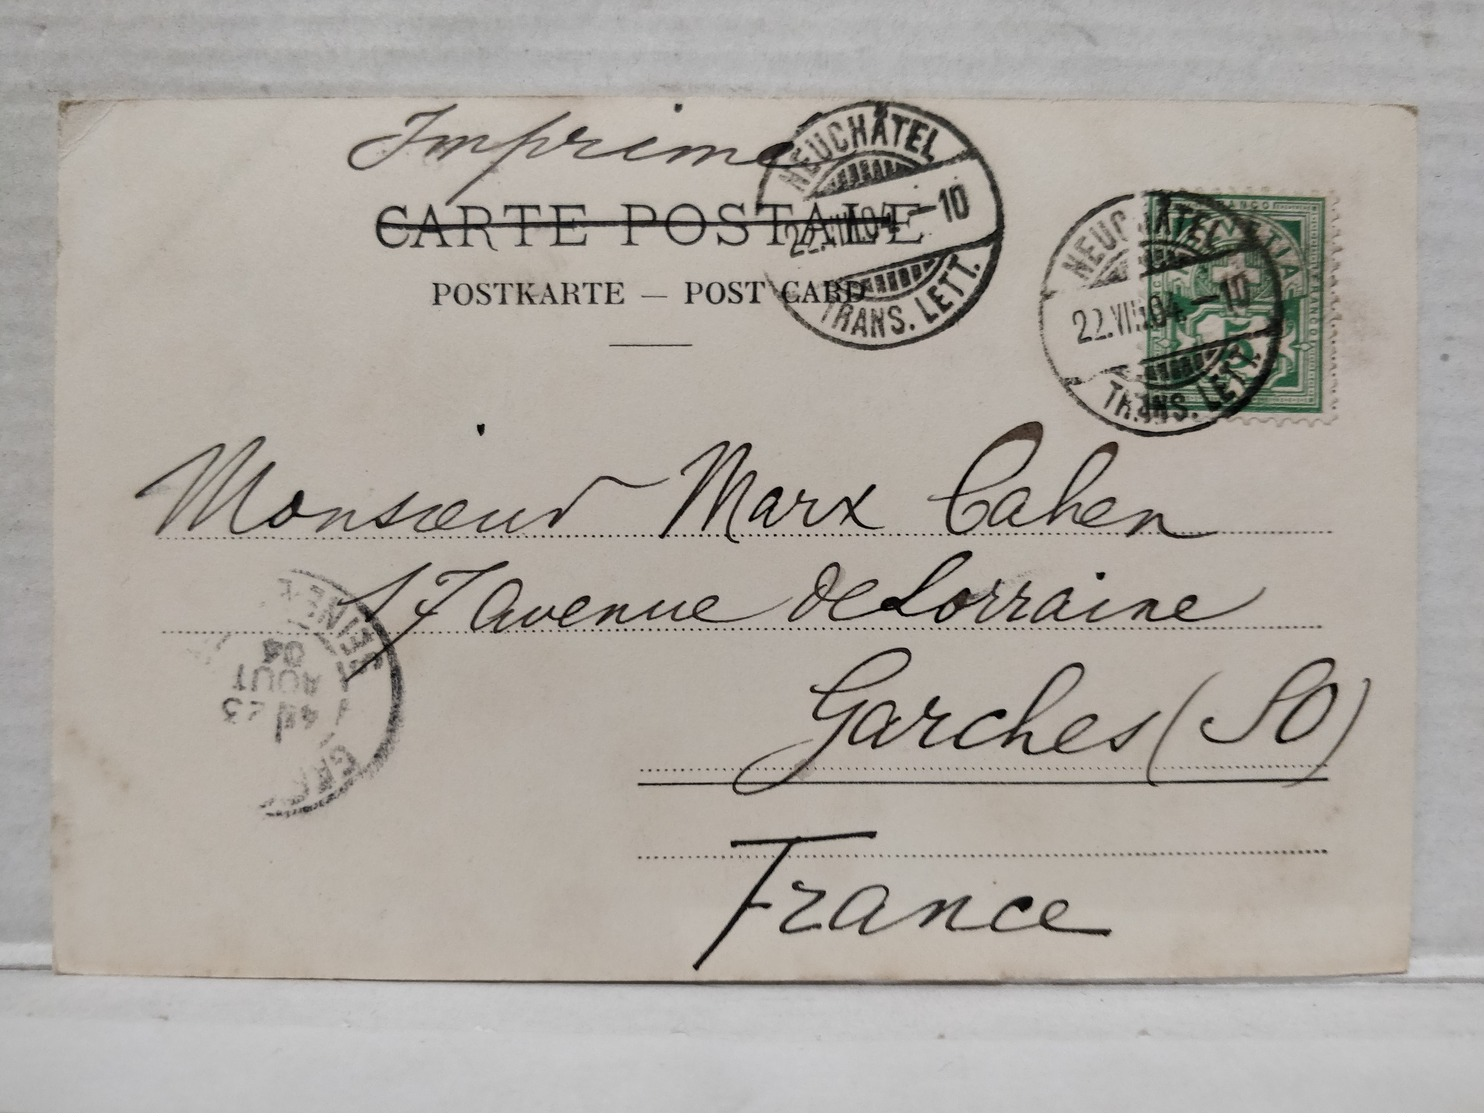 Imprimé
CARTE POSTALE
POSTKARTE — POST CARD
NEUCHÂTEL
22.VIII.04 – 10
TRANS. LETT.
NEUCHÂTEL
22.VIII.04 – 10
TRANS. LETT.
FRANCO
5
Monsieur Marx Cahen
17 avenue de Lorraine
Garches (SO)
France
SEINE
4E 23
AOUT
04